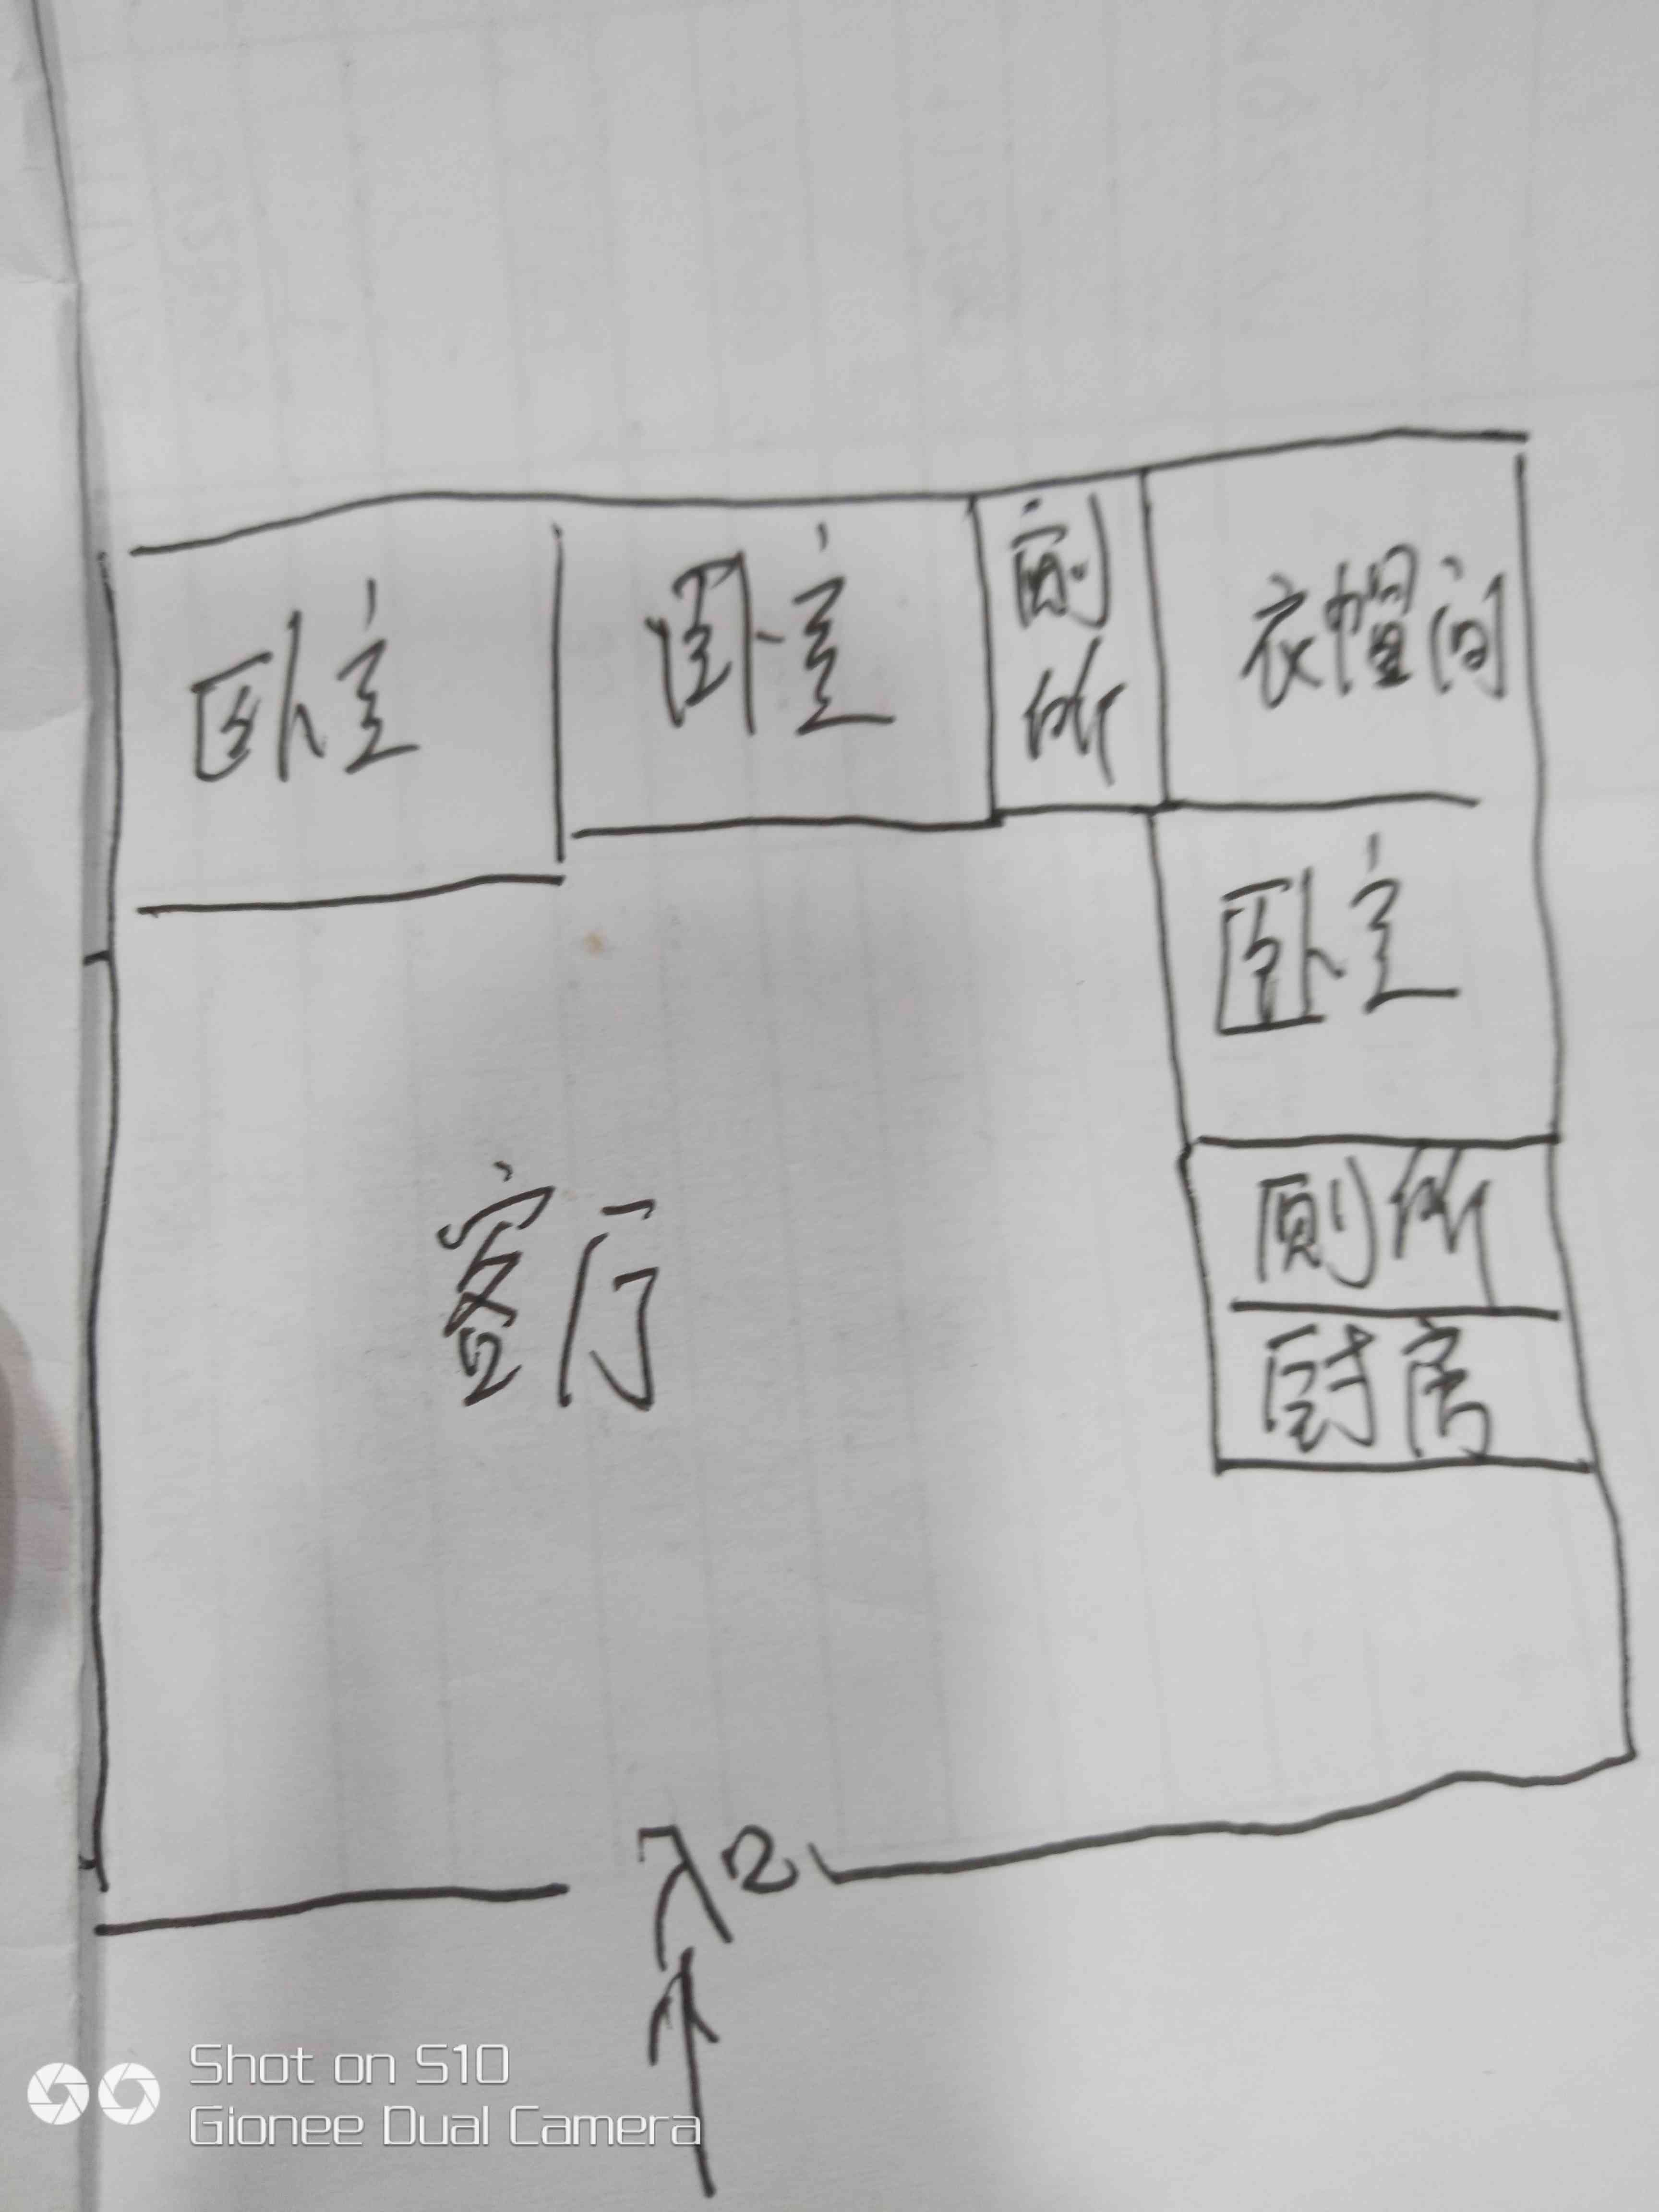 卧室
卧室
厕所
衣帽间
卧室
厕所
厨房
客厅
入口
Shot on S10
Gionee Dual Camera